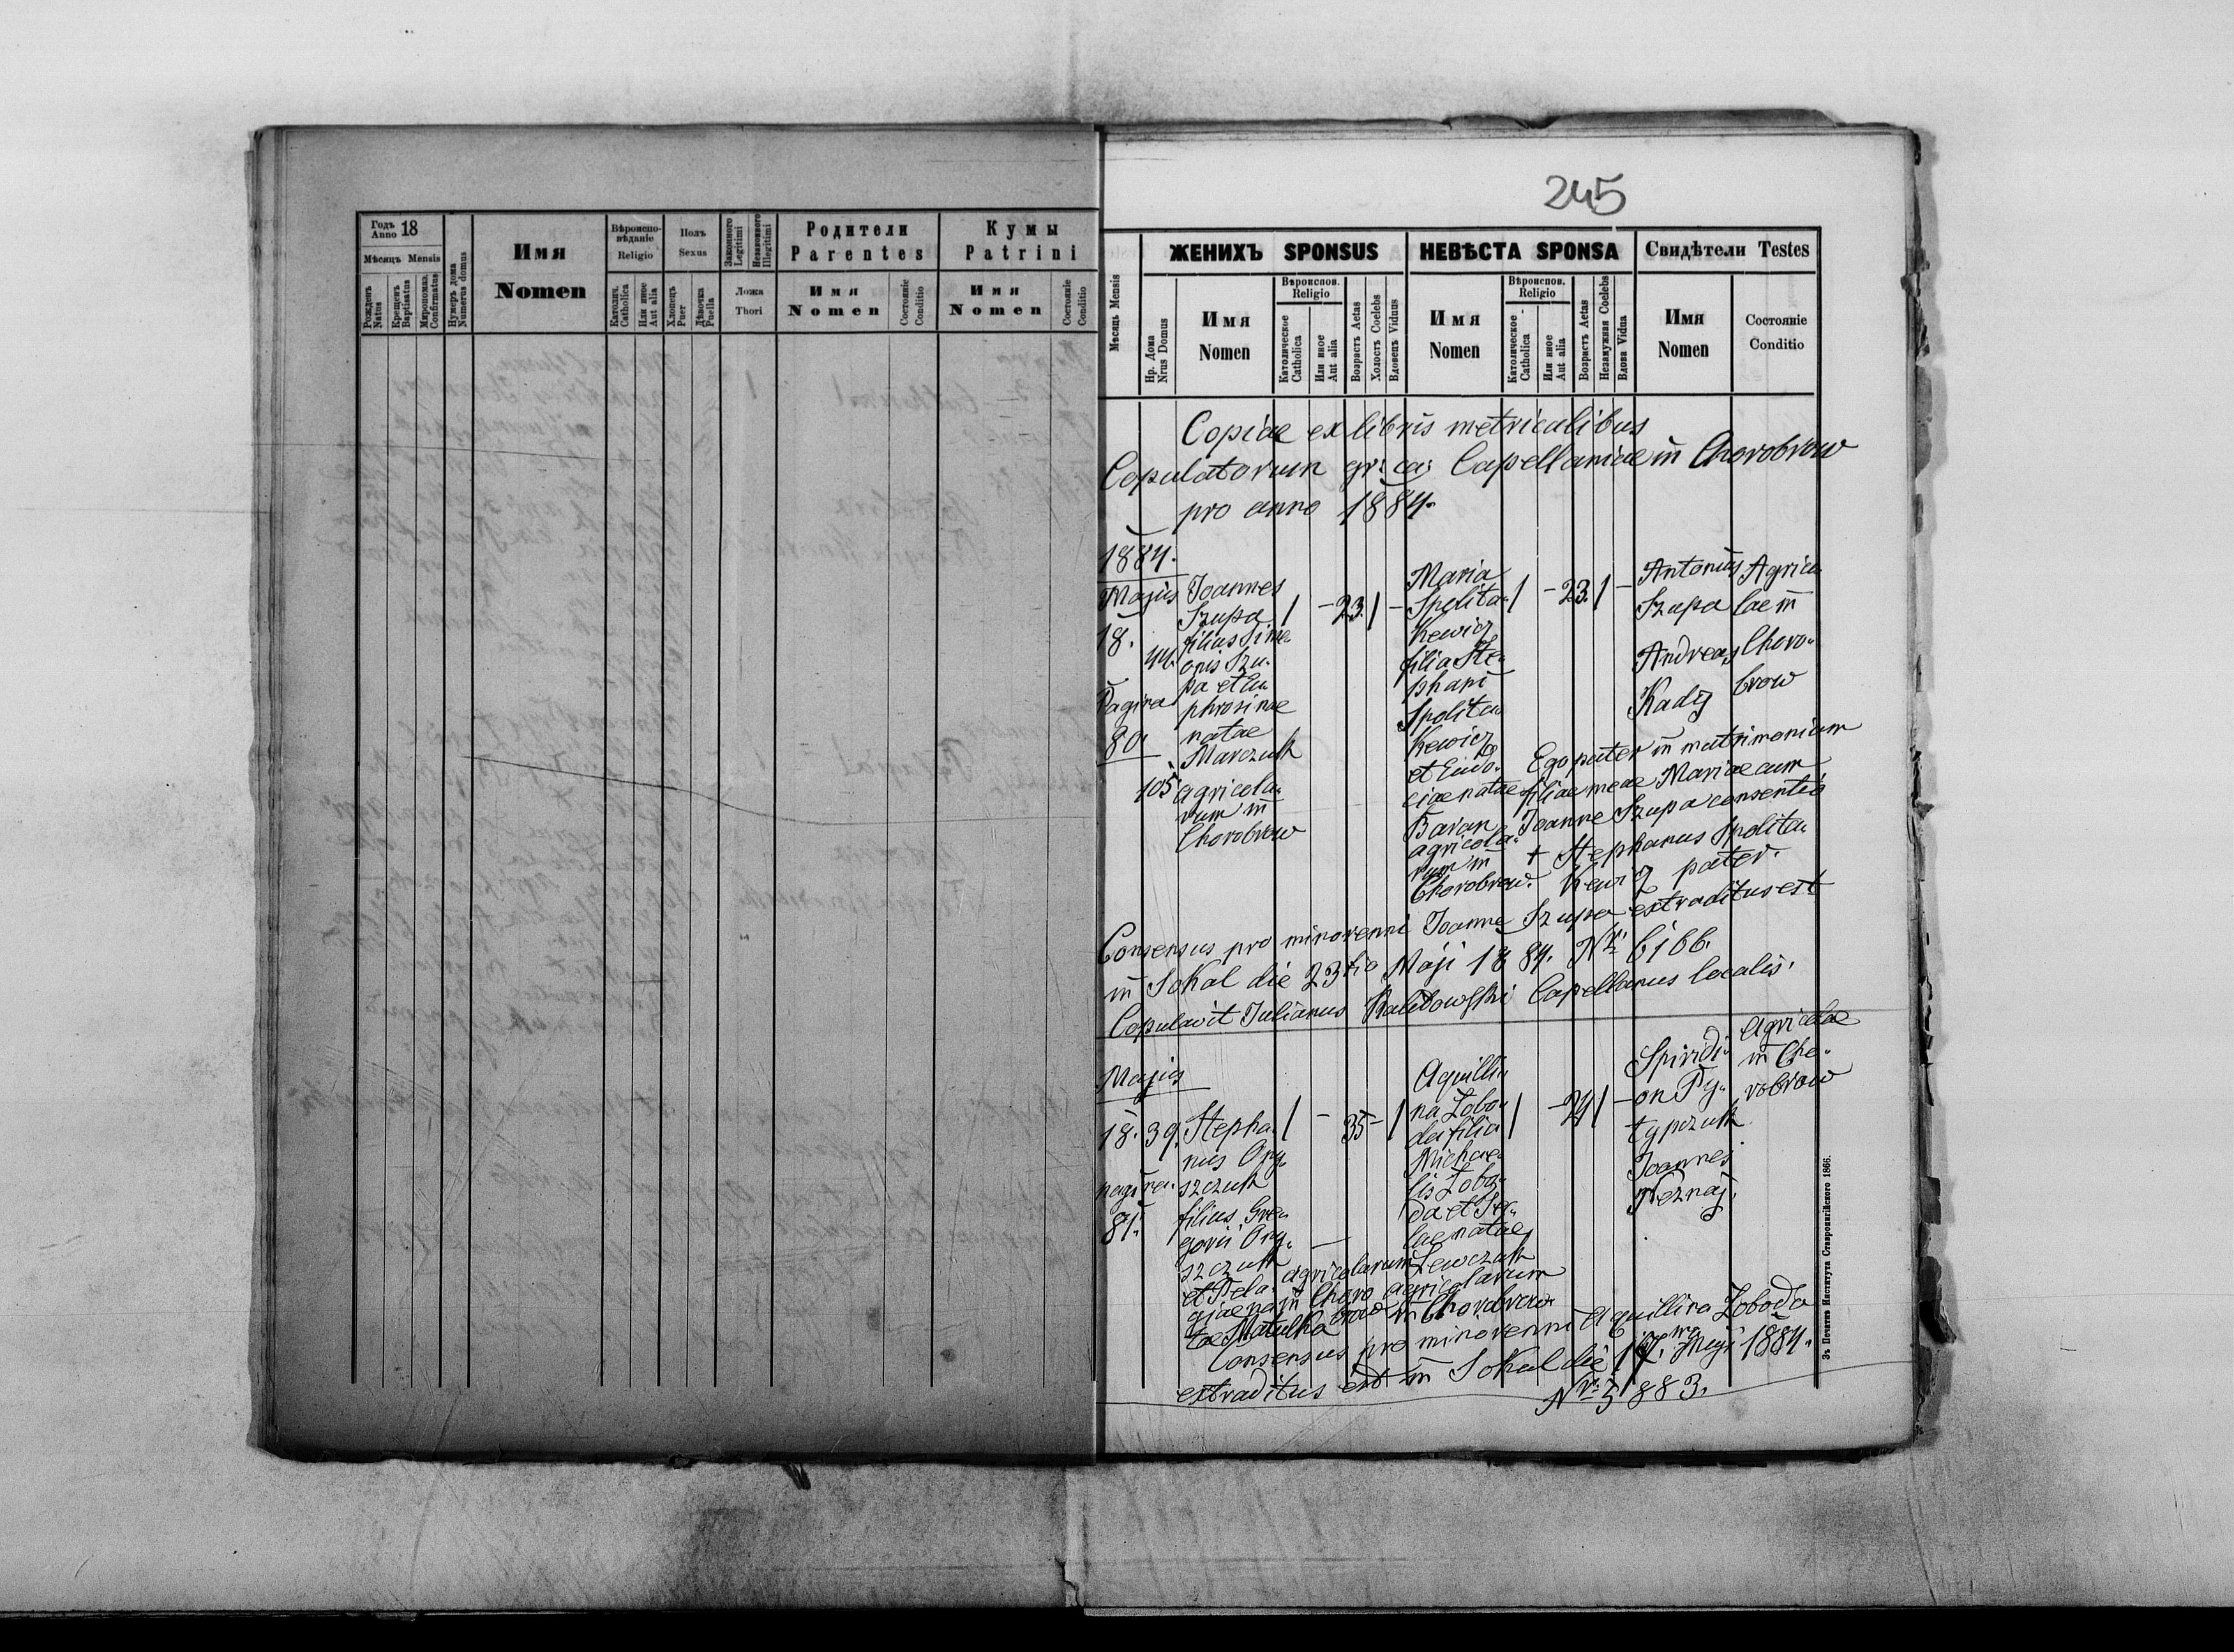 Годъ Anno 18
Мѣсяцъ Mensis
Рожденъ Natus
Крещенъ Baptisatus
Мѵропомаз. Confirmatus
Нумеръ дома Numerus domus
Имя Nomen
Вѣроиспо-вѣданіе Religio
Католич. Catholica
Или иное Aut alia
Полъ Sexus
Хлопецъ Puer
Дѣвочка Puella
Законного Legitimi
Незаконного Illegitimi
Ложа Thori
Родители Parentes
Имя Nomen
Состояніе Conditio
Кумы Patrini
Имя Nomen
Состояніе Conditio
245
Мѣсяцъ Mensis
ЖЕНИХЪ SPONSUS
НЕВѢСТА SPONSA
Свидѣтели Testes
Нр. Дома Nrus Domus
Имя Nomen
Вѣроиспов. Religio
Католическое Catholica
Или иное Aut alia
Возрастъ Aetas
Холостъ Coelebs
Вдовецъ Viduus
Имя Nomen
Вѣроиспов. Religio
Католическое Catholica
Или иное Aut alia
Возрастъ Aetas
Незамужная Coelebs
Вдова Vidua
Имя Nomen
Состояніе Conditio
Copiae ex libris metricalibus
Copulatorum gr: ca: Capellaniae in Chorobrow
pro anno 1884.
1884.
Majus
18.
Pagina
80
44.
105
Joannes
Szupa
filius Sime-
onis Szu-
pa et Eu-
phrosinae
natae
Marczuk
agricola-
rum in
Chorobrow
/ - 23. / -
Maria
Spolita-
kewicz
filia Ste-
phani
Spolita-
kewicz
et Eudo-
ciae natae
Baran
agricola-
rum in
Chorobrow.
/ - 23. / -
Antonius
Szupa
Andreas
Kadij
Agrico-
lae in
Choro-
brow
Ego pater in matrimonium
filiae meae Mariae cum
Joanne Szupa consentio
+ Stephanus Spolita-
kewicz pater.
Consensus pro minorenni Joanne Szupa extraditus est
in Sokal die 23tio Maji 1884. Nr. 6166.
Copulavit Julianus Capellanus localis.
Majus
18.
pagina
81.
39.
Stepha-
nus Ony-
szczuk
filius Gre-
gorii Ony-
szczuk
et Pela-
giae na-
tae Matulka
agricolarum
in Choro-
brow
/ - 35 - /
Aquilli-
na Łobo-
da filia
Michae-
lis Łobo-
da et
natae
Lewczuk
agricolarum
in Chorobrow
/ - 24 / -
Spiridi-
on Py-
typczuk
Joannes
Neznaj.
Agricolae
in Cho-
robrow
Consensus pro minorenni Aquillina Łoboda
extraditus est in Sokal die 17. Maji 1884.
Nr: 5883.
Зъ Печатнѣ Института Ставропигійского 1866.